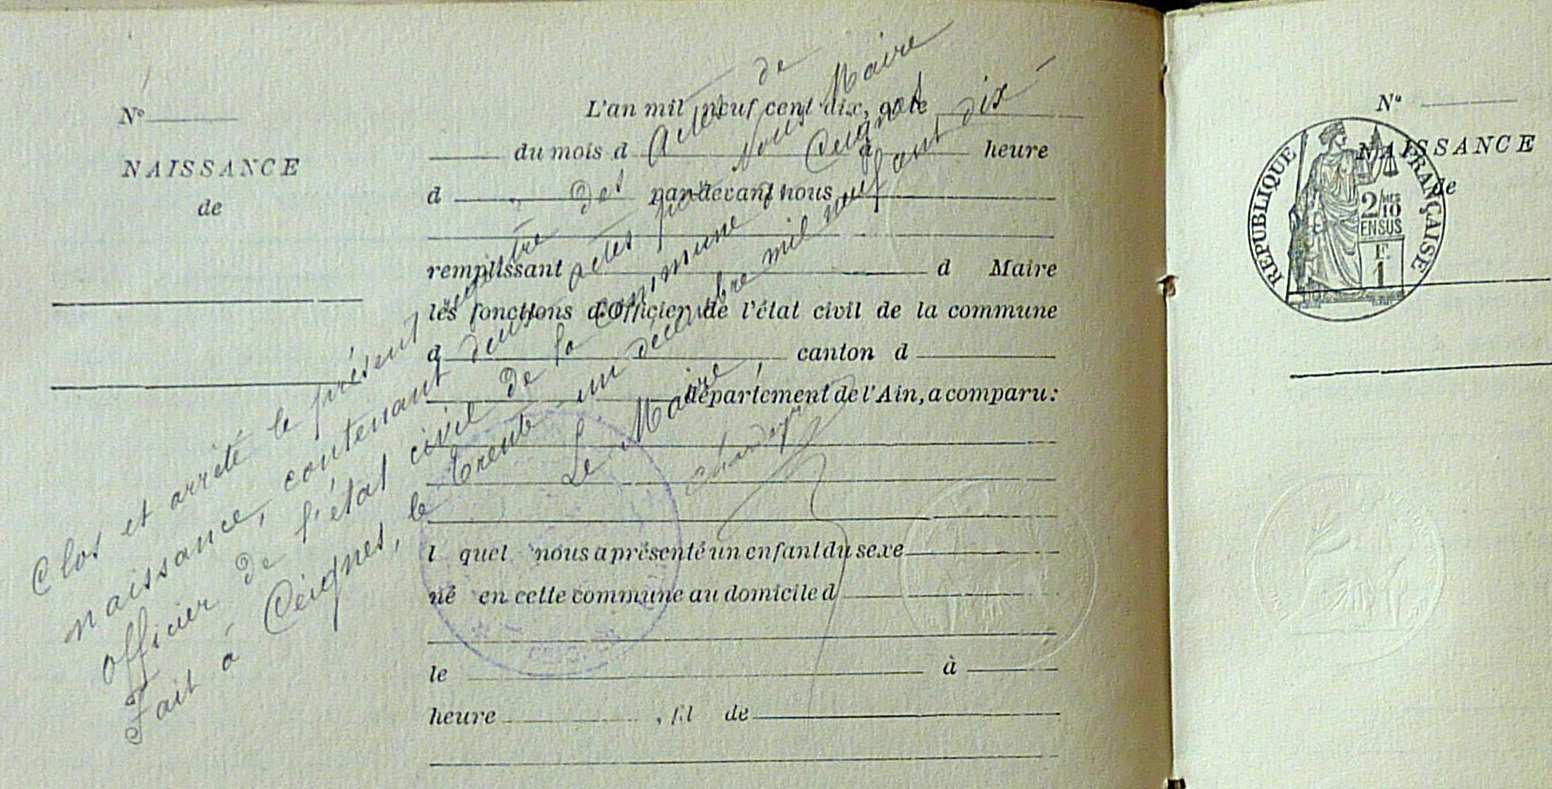 N°
NAISSANCE
de
L'an mil neuf cent dix, et le
du mois d à heure
d par devant nous
remplissant d Maire
les fonctions d'Officier de l'état civil de la commune
d canton d
département de l'Ain, a comparu:
l quel nous a présenté un enfant du sexe
né en cette commune au domicile d
le à
heure , fil de
Clos et arrêté le présent registre des Actes de
naissance, contenant deux actes par Nous Maire
officier de l'état civil de la commune de Ceignes
Fait à Ceignes, le trente-un décembre mil neuf cent dix
Le Maire,
N°
NAISSANCE
de
REPUBLIQUE FRANÇAISE
2/10
EN SUS
1 F.